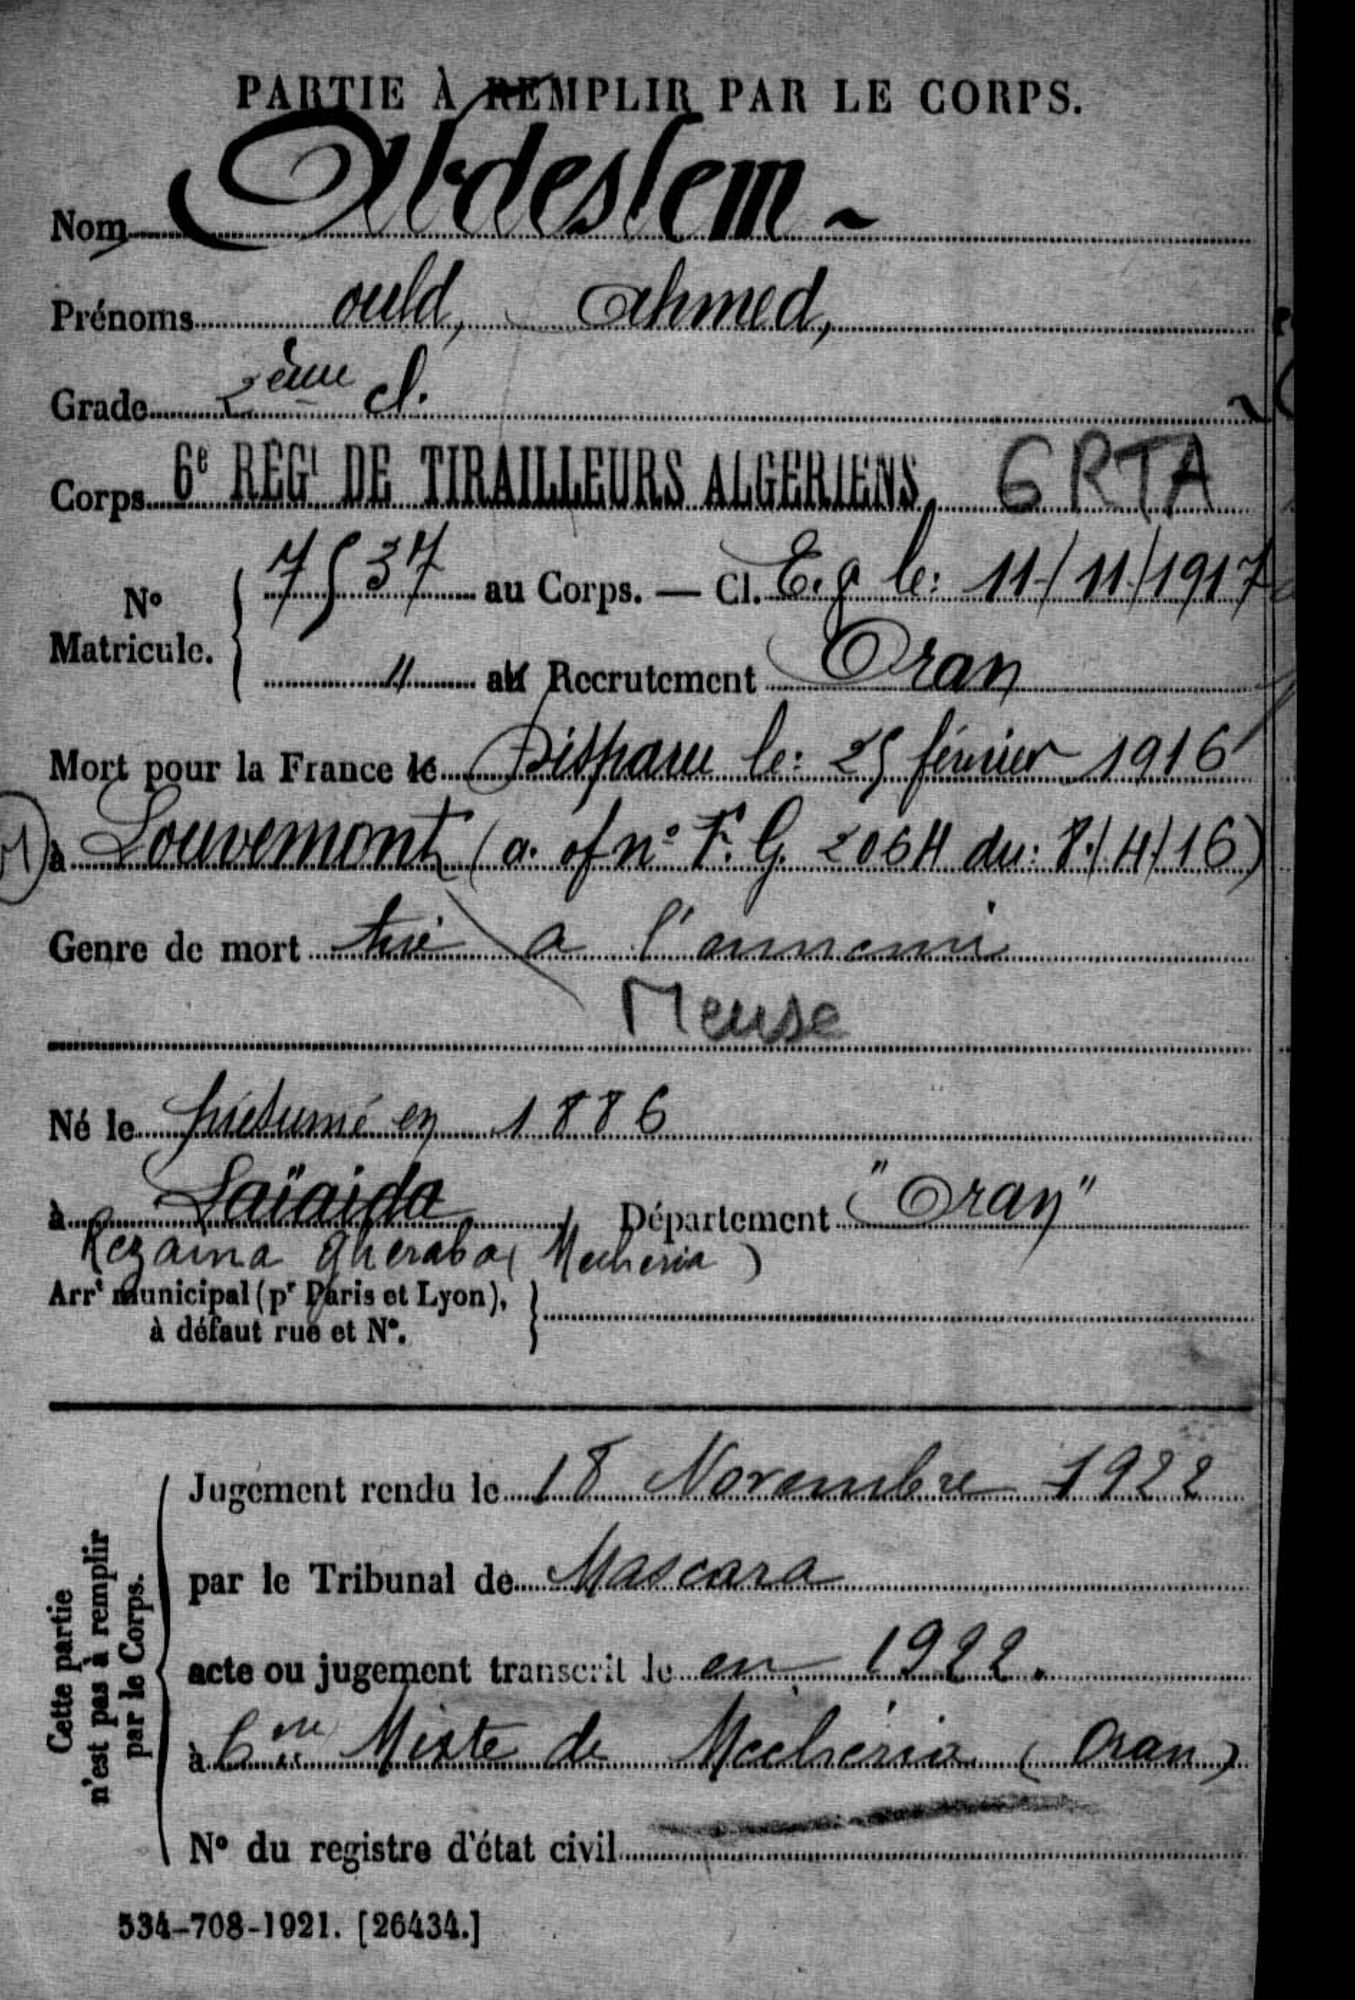 PARTIE À REMPLIR PAR LE CORPS.
Nom Abdeslem
Prénoms ould, Ahmed,
Grade 2ème cl.
Corps 6e RÉGt DE TIRAILLEURS ALGÉRIENS, 6 RTA
No Matricule. { 7537 au Corps. — Cl. E.g le: 11/11/1917
" au Recrutement Oran
Mort pour la France le Disparu le: 25 février 1916
à Louvemont (a. of no F. G. 2064 du: 8/4/16)
Genre de mort tué a l'ennemi
Meuse
Né le présumé en 1886
à Saïaida Département "Oran"
Rezaina Gheraba (Mecheria)
Arrt municipal (pr Paris et Lyon), }
à défaut rue et No.
Cette partie
n'est pas à remplir
par le Corps.
Jugement rendu le 18 Novembre 1922
par le Tribunal de Mascara
acte ou jugement transcrit le en 1922.
à Cne Mixte de Mechéria (Oran)
No du registre d'état civil
534-708-1921. [26434.]